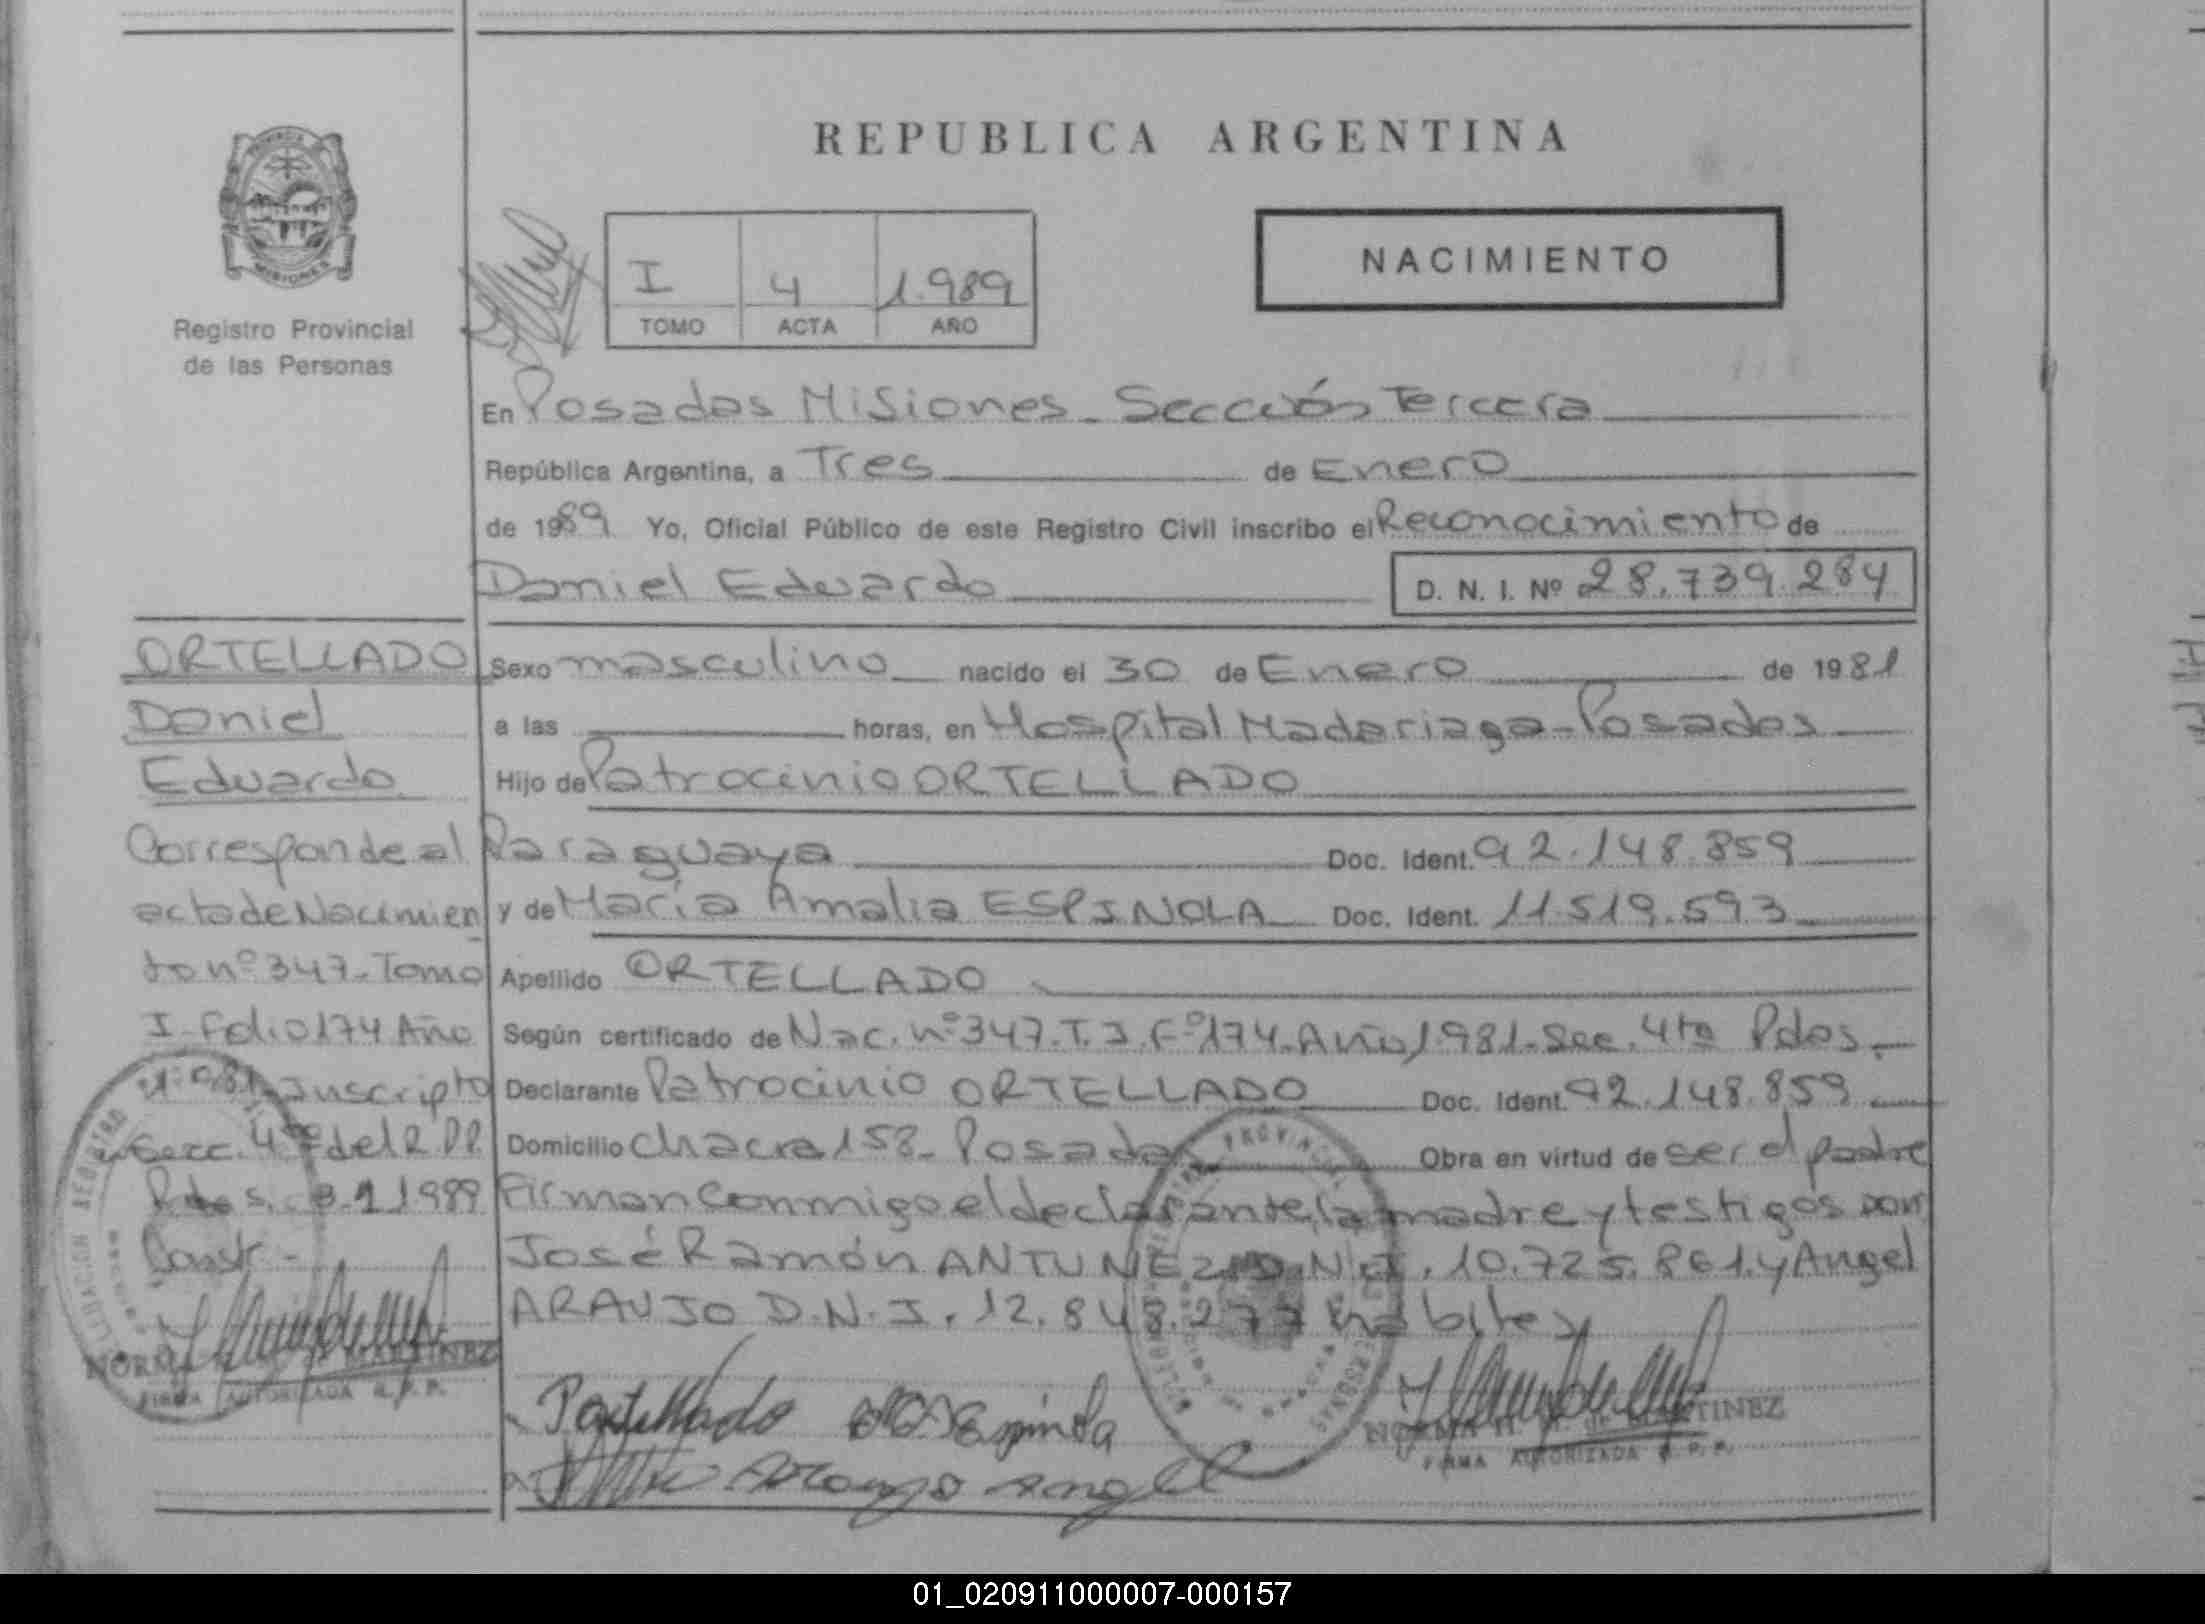 REPUBLICA ARGENTINA
PROVINCIA
MISIONES
Registro Provincial
de las Personas
I 4 1.989
TOMO ACTA AÑO
NACIMIENTO
En Posadas Misiones - Sección Tercera
República Argentina, a Tres de Enero
de 1989 Yo, Oficial Público de este Registro Civil inscribo el Reconocimiento de
Daniel Eduardo D. N. I. Nº 28.739.284
Sexo masculino nacido el 30 de Enero de 1981
a las horas, en Hospital Madariaga - Posadas
Hijo de Patrocinio ORTELLADO
Paraguaya Doc. Ident. 92.148.859
y de María Amalia ESPINOLA Doc. Ident. 11.519.593
Apellido ORTELLADO
Según certificado de Nac. nº 347. T. I. Fº 174. Año 1981. Sec. 4ta Pdas.
Declarante Patrocinio ORTELLADO Doc. Ident. 92.148.859
Domicilio Chacra 158 - Posadas Obra en virtud de ser el padre
Firman conmigo el declarante, la madre y testigos don
José Ramón ANTUNEZ D.N.I. 10.725.861 y Angel
ARAUJO D.N.I. 12.848.277 habiles
ORTELLADO
Daniel
Eduardo
Corresponde al
acta de Nacimien
to nº 347 - Tomo
I - Folio 174 Año
1.981 Inscripto
Secc. 4ta del R.P.P.
Pdas. 3.1 1989
Const. -
NORMA MARTINEZ
FIRMA AUTORIZADA R. P. P.
Portellado Espínola
Araujo Angel
NORMA H. de MARTINEZ
FIRMA AUTORIZADA R. P. P.
01_020911000007-000157